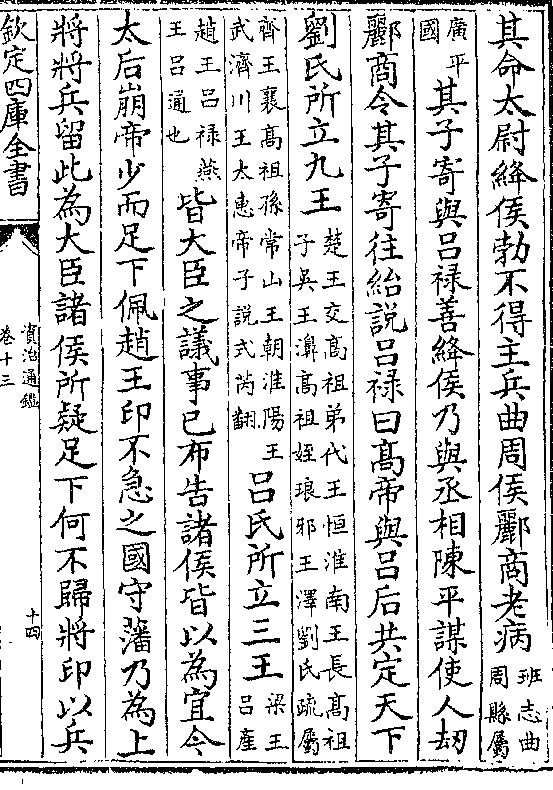 其命太尉絳侯勃不得主兵曲周侯酈商老病班志曲周縣屬
廣平國其子寄與呂禄善絳侯乃與丞相陳平謀使人劫
酈商令其子寄往紿説呂禄曰髙帝與呂后共定天下
劉氏所立九王楚王交髙祖弟代王恒淮南王長髙祖子吳王濞髙祖姪琅邪王澤劉氏疏屬
齊王襄髙祖孫常山王朝淮陽王武濟川王太惠帝子説式芮翻呂氏所立三王梁王呂產
趙王呂禄燕王呂通也皆大臣之議事已布告諸侯皆以為宜今
太后崩帝少而足下佩趙王印不急之國守藩乃為上
將將兵留此為大臣諸侯所疑足下何不歸將印以兵
欽定四庫全書
資治通鑑
卷十三
十四